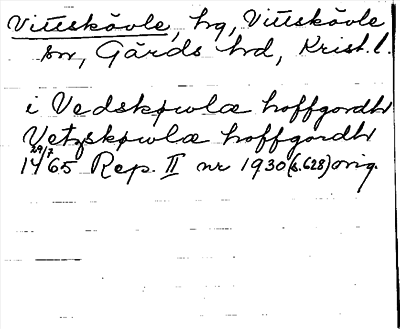 Vittskövle, hg, Vittskövle
sn, Gärds hd, Krist. l.
i Vedskøwlæ hoffgordh
Vetzskøwlæ hoffgordh
29/7
1465 Rep. II nr 1930 (s. 628) orig.